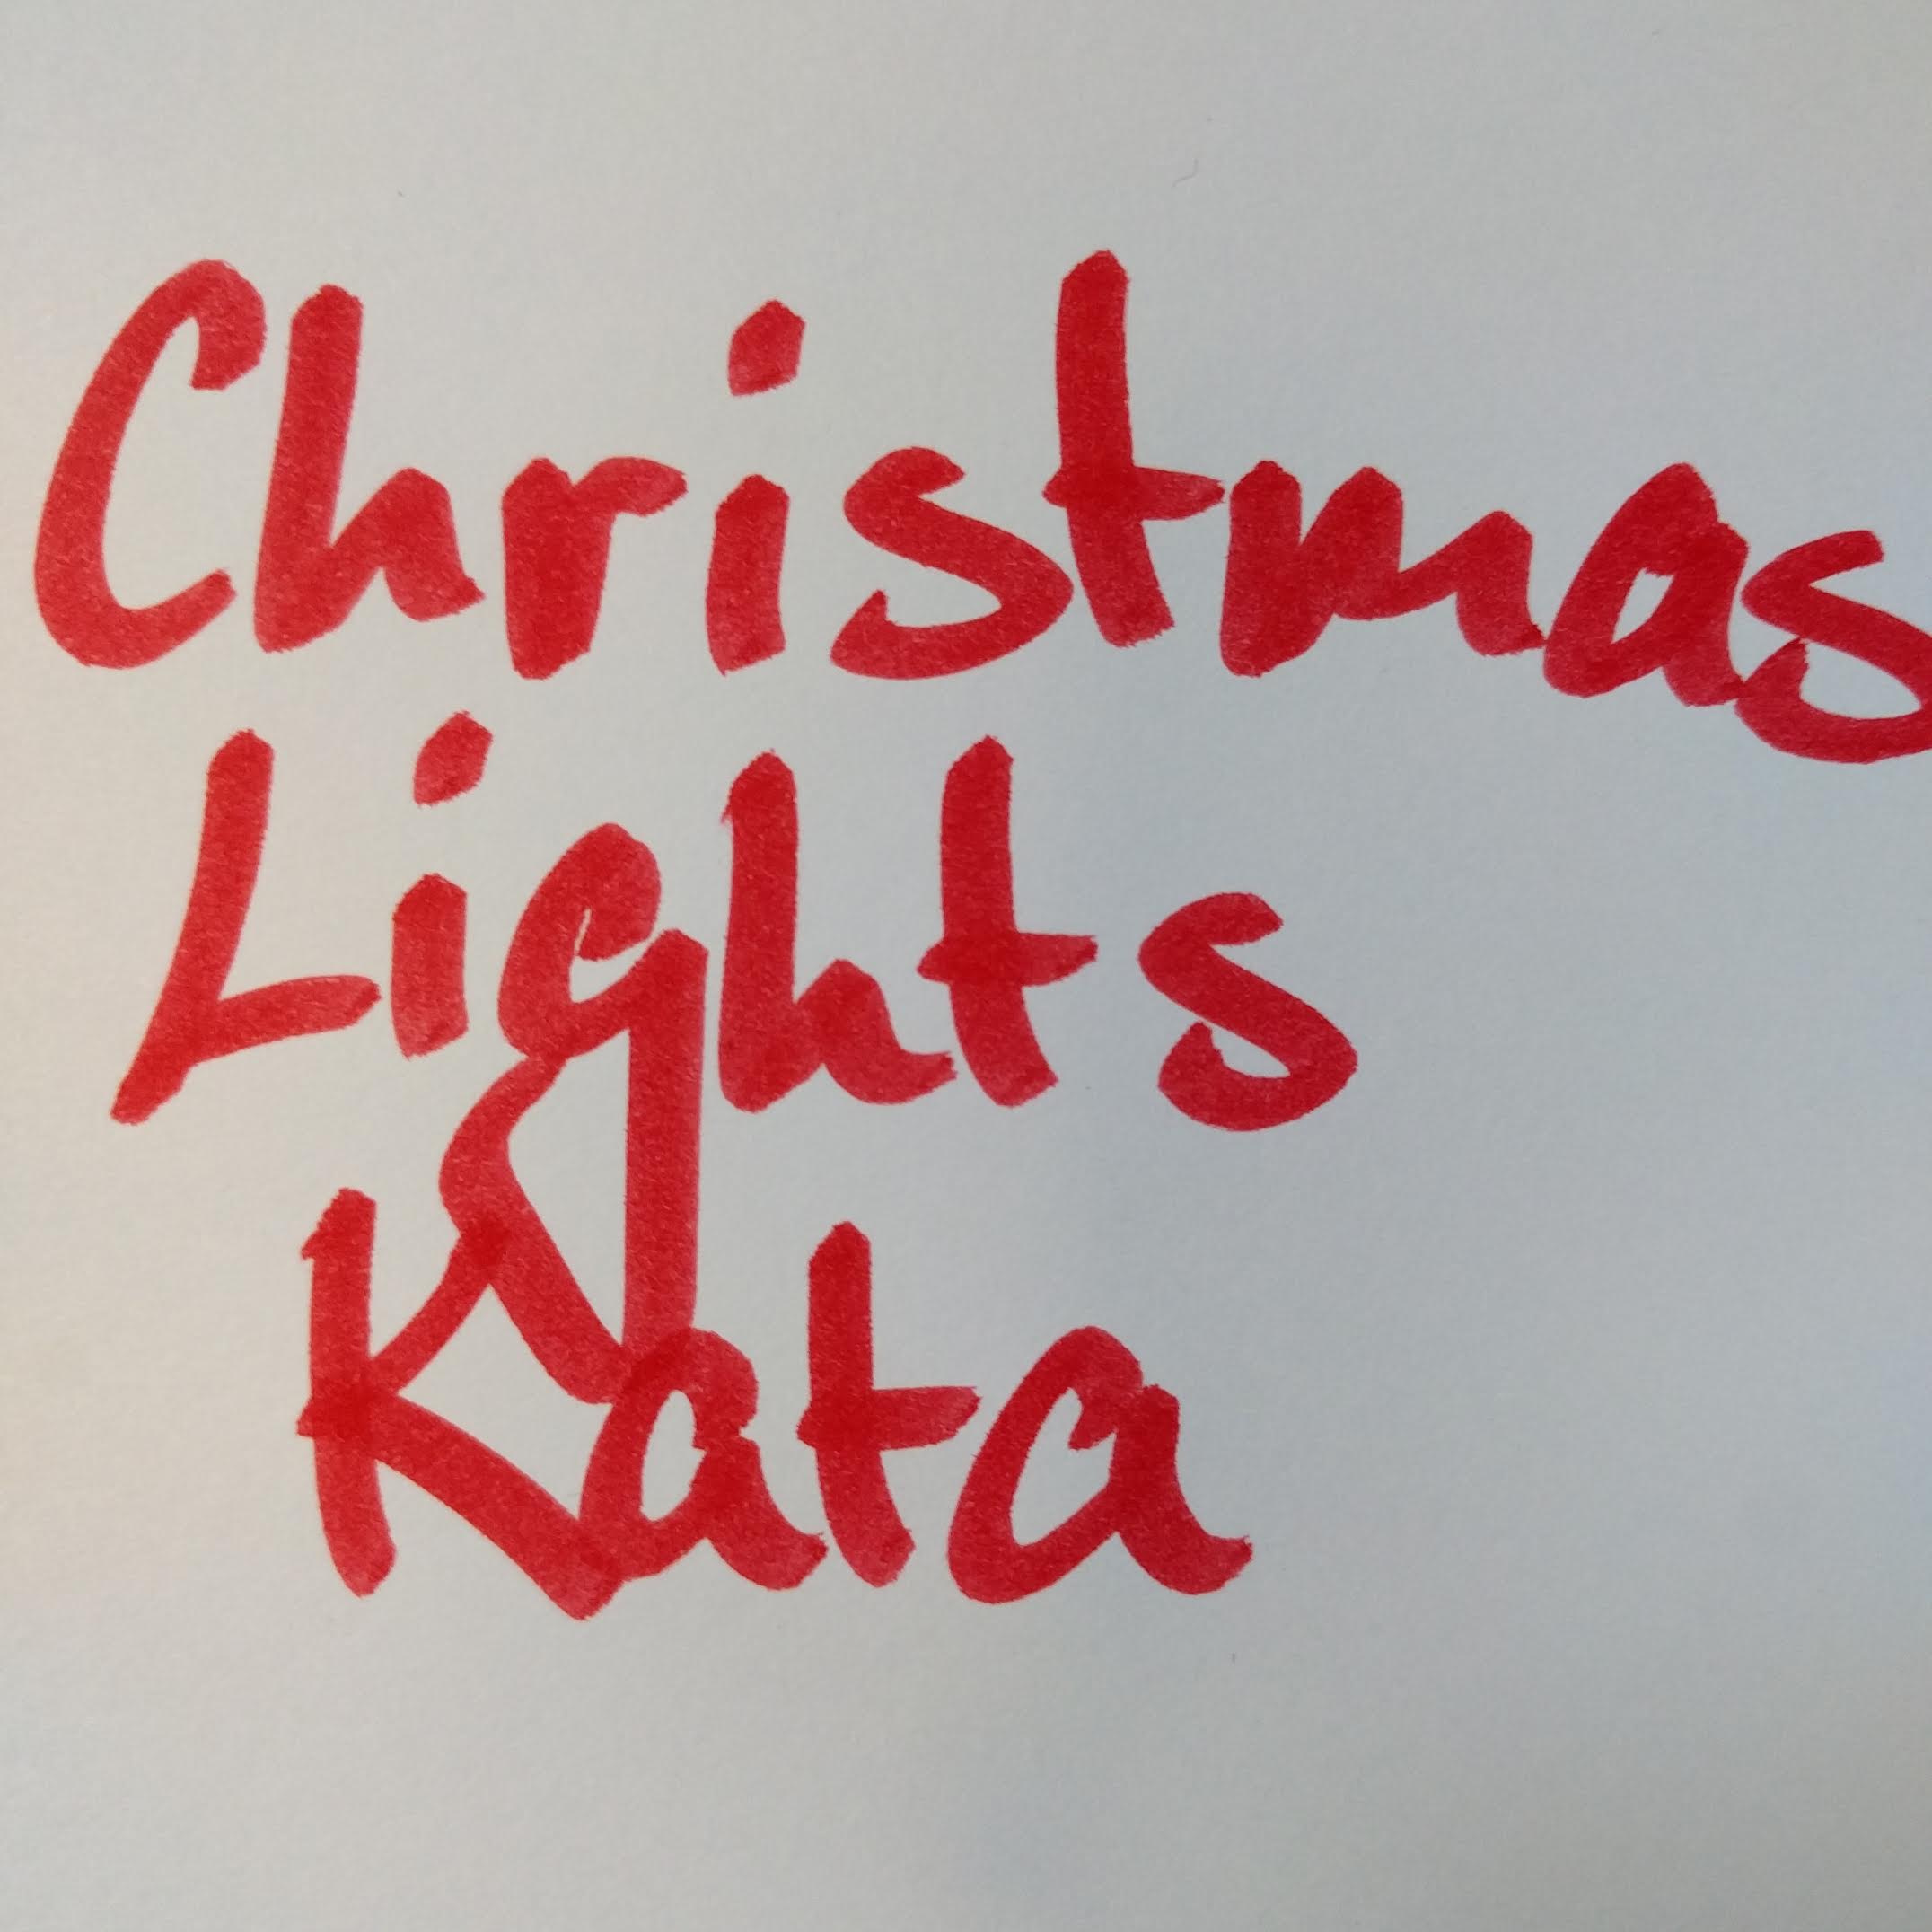 Christmas
Lights
Kata